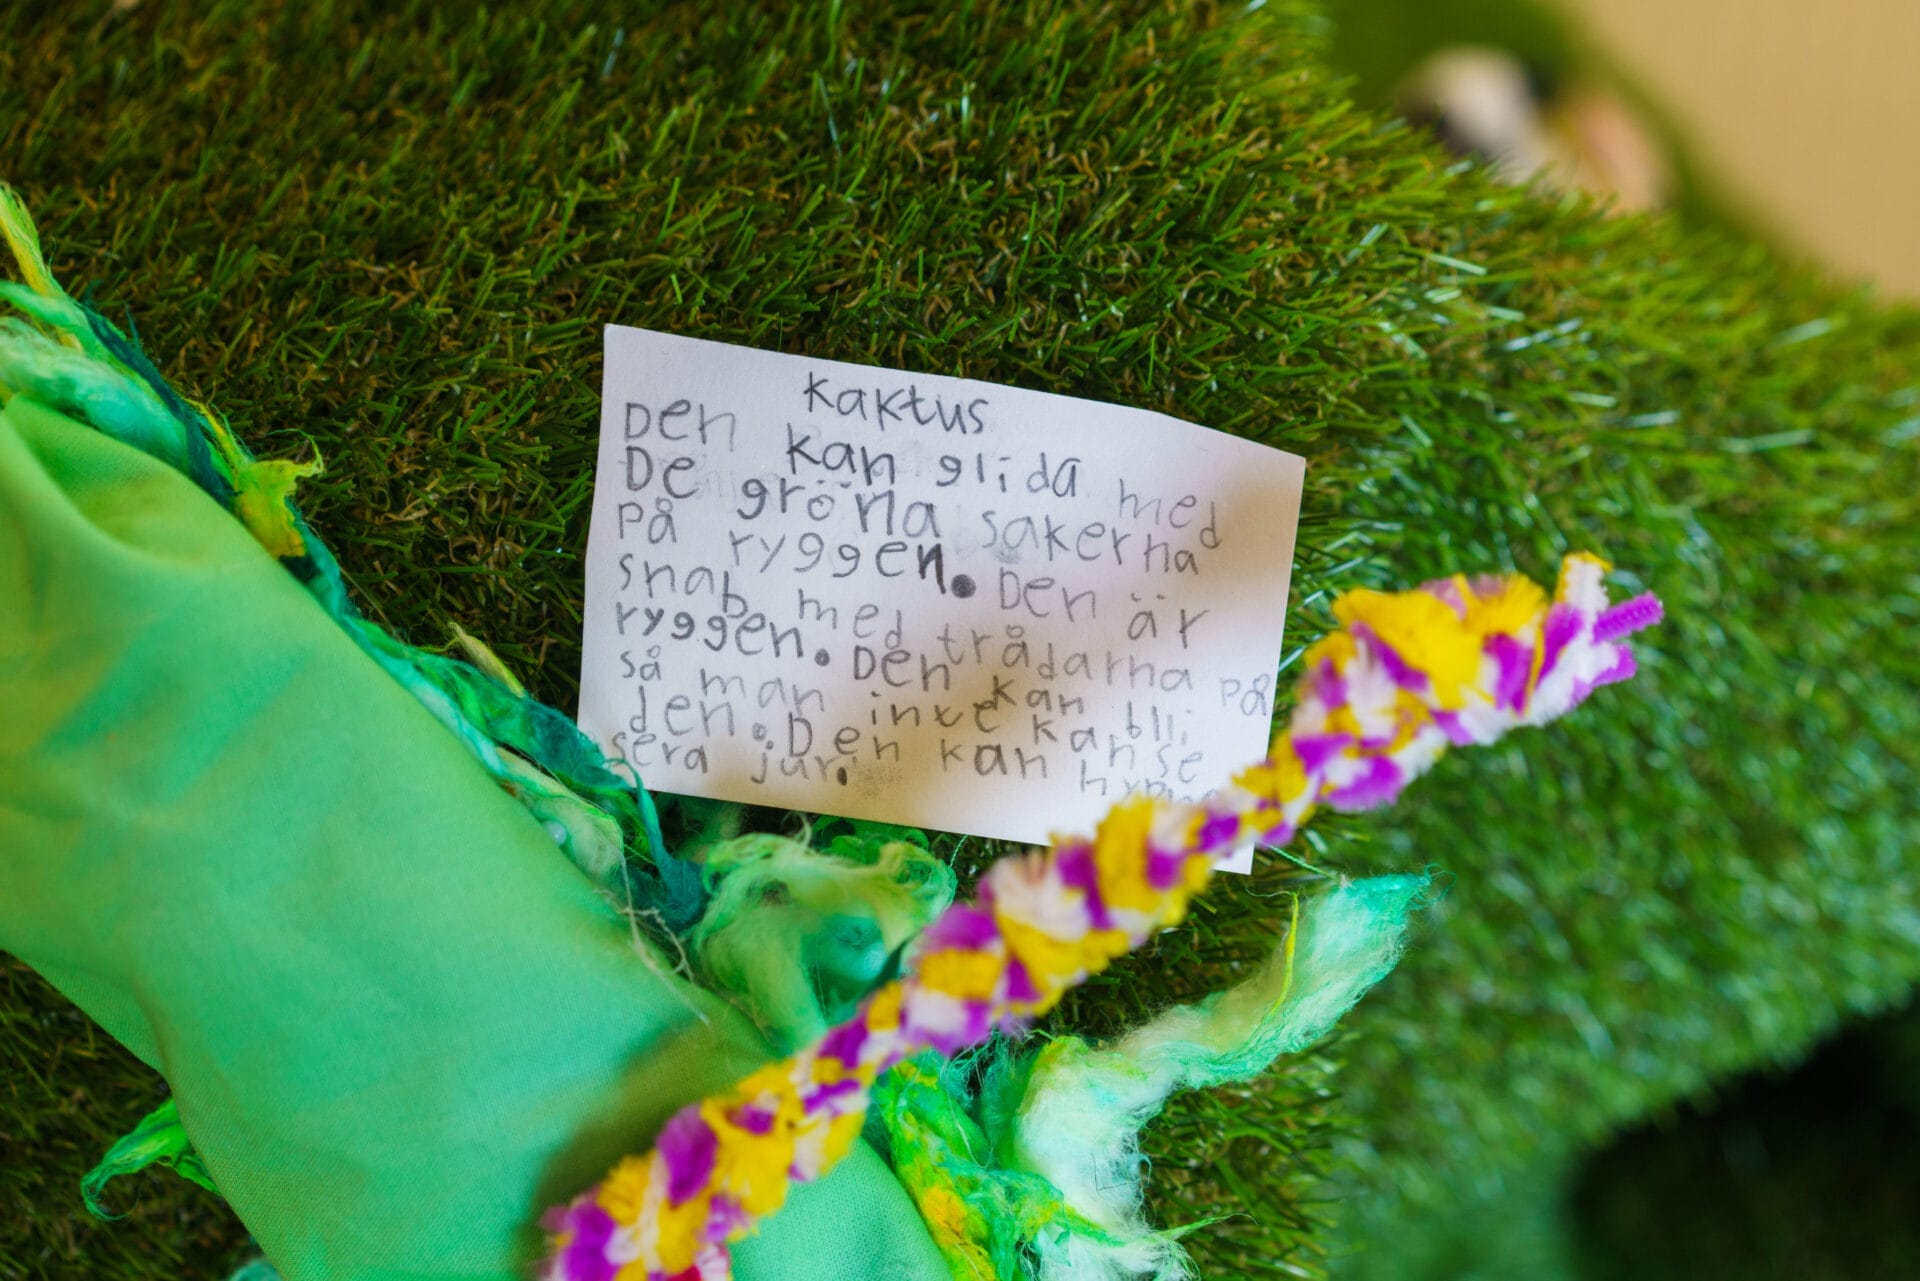 kaktus
Den kan glida med
De gröna sakerna
på ryggen. Den är
snab med trådarna på
ryggen. Den kan bli
så man inte kan se
den. Den kan hypno
sera jur.